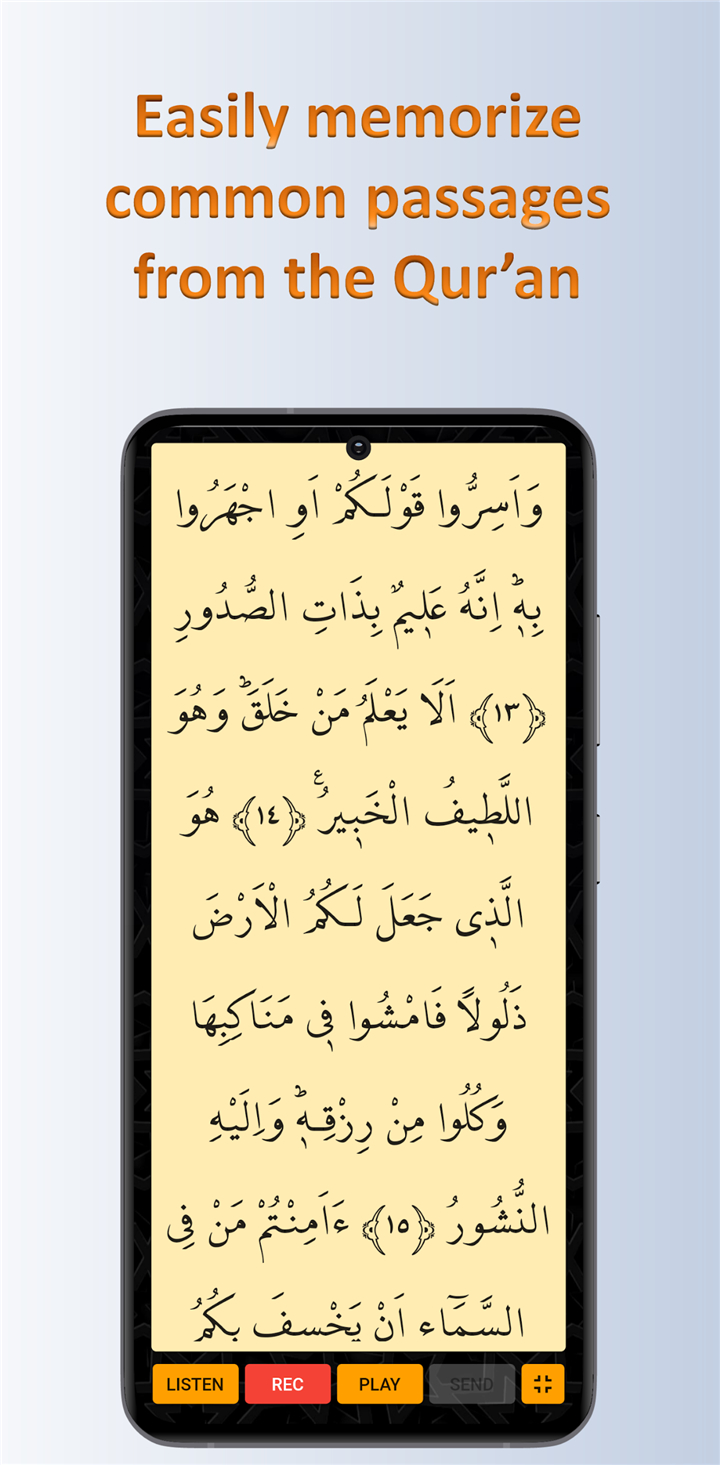 Easily memorize
common passages
from the Qur’an
وَاَسِرُّوا قَوْلَكُمْ اَوِ اجْهَرُوا
بِهٖۜ اِنَّهُ عَلٖيمٌ بِذَاتِ الصُّدُورِ
﴿١٣﴾ اَلَا يَعْلَمُ مَنْ خَلَقَۜ وَهُوَ
اللَّطٖيفُ الْخَبٖيرُࣖ ﴿١٤﴾ هُوَ
الَّذٖى جَعَلَ لَكُمُ الْاَرْضَ
ذَلُولًا فَامْشُوا فٖى مَنَاكِبِهَا
وَكُلُوا مِنْ رِزْقِهٖۜ وَاِلَيْهِ
النُّشُورُ ﴿١٥﴾ ءَاَمِنْتُمْ مَنْ فِى
السَّمَٓاءِ اَنْ يَخْسِفَ بِكُمُ
LISTEN REC PLAY SEND